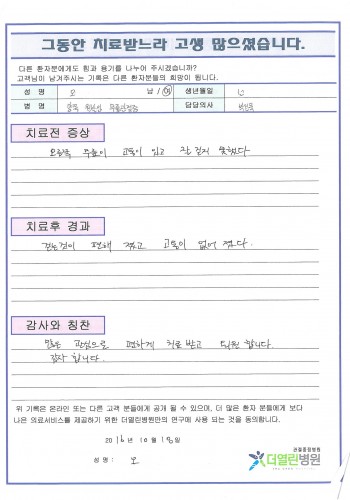 그동안 치료받느라 고생 많으셨습니다.
다른 환자분에게도 힘과 용기를 나누어 주시겠습니까?
고객님이 남겨주시는 기록은 다른 환자분들의 희망이 됩니다.
성 명 오 남 / 여 생년월일
병 명 양쪽 무릎관절증 담당의사
치료전 증상
오른쪽 무릎이 고통이 있고 잘 걷지 못했다
치료후 경과
걷는것이 편해 졌고 고통이 없어 졌다.
감사와 칭찬
관심으로 편하게 치료 받고 퇴원 합니다.
감사 합니다.
위 기록은 온라인 또는 다른 고객 분들에게 공개 될 수 있으며, 더 많은 환자 분들에게 보다
나은 의료서비스를 제공하기 위한 더열린병원만의 연구에 사용 되는 것을 동의합니다.
2016년 10월 18일
성 명 : 오
관절중점병원
더열린병원